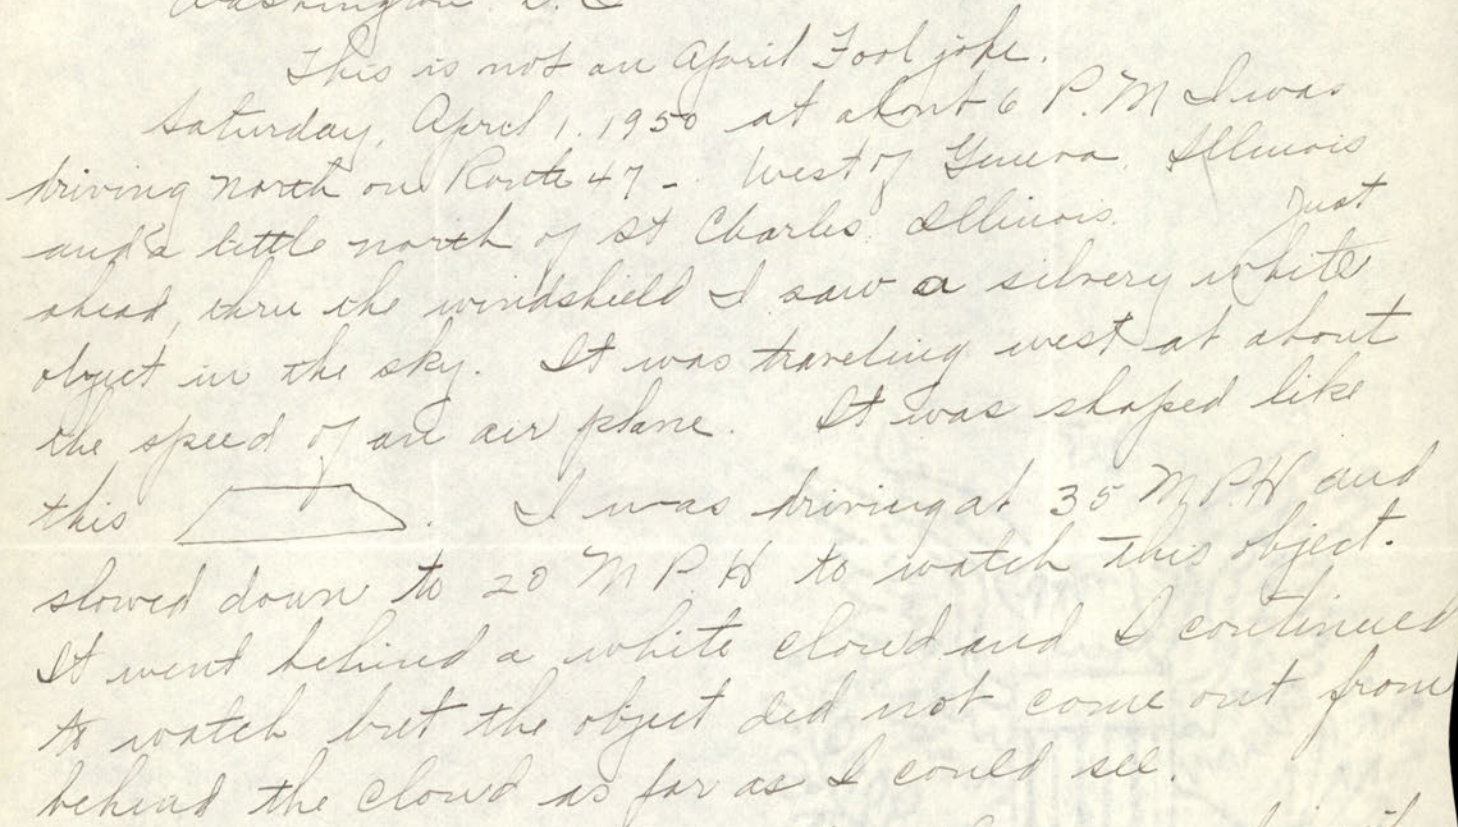 Washington D.C
This is not an April Fool joke.
Saturday, April 1. 1950 at about 6 P.M I was
driving north on Route 47 - West of Geneva. Illinois
and a little north of St Charles Illinois. Just
ahead, thru the windshield I saw a silvery white
object in the sky. It was traveling west at about
the speed of an air plane. It was shaped like
this . I was driving at 35 M.P.H and
slowed down to 20 M P. H to watch this object.
It went behind a white cloud and I continued
to watch but the object did not come out from
behind the cloud as far as I could see.